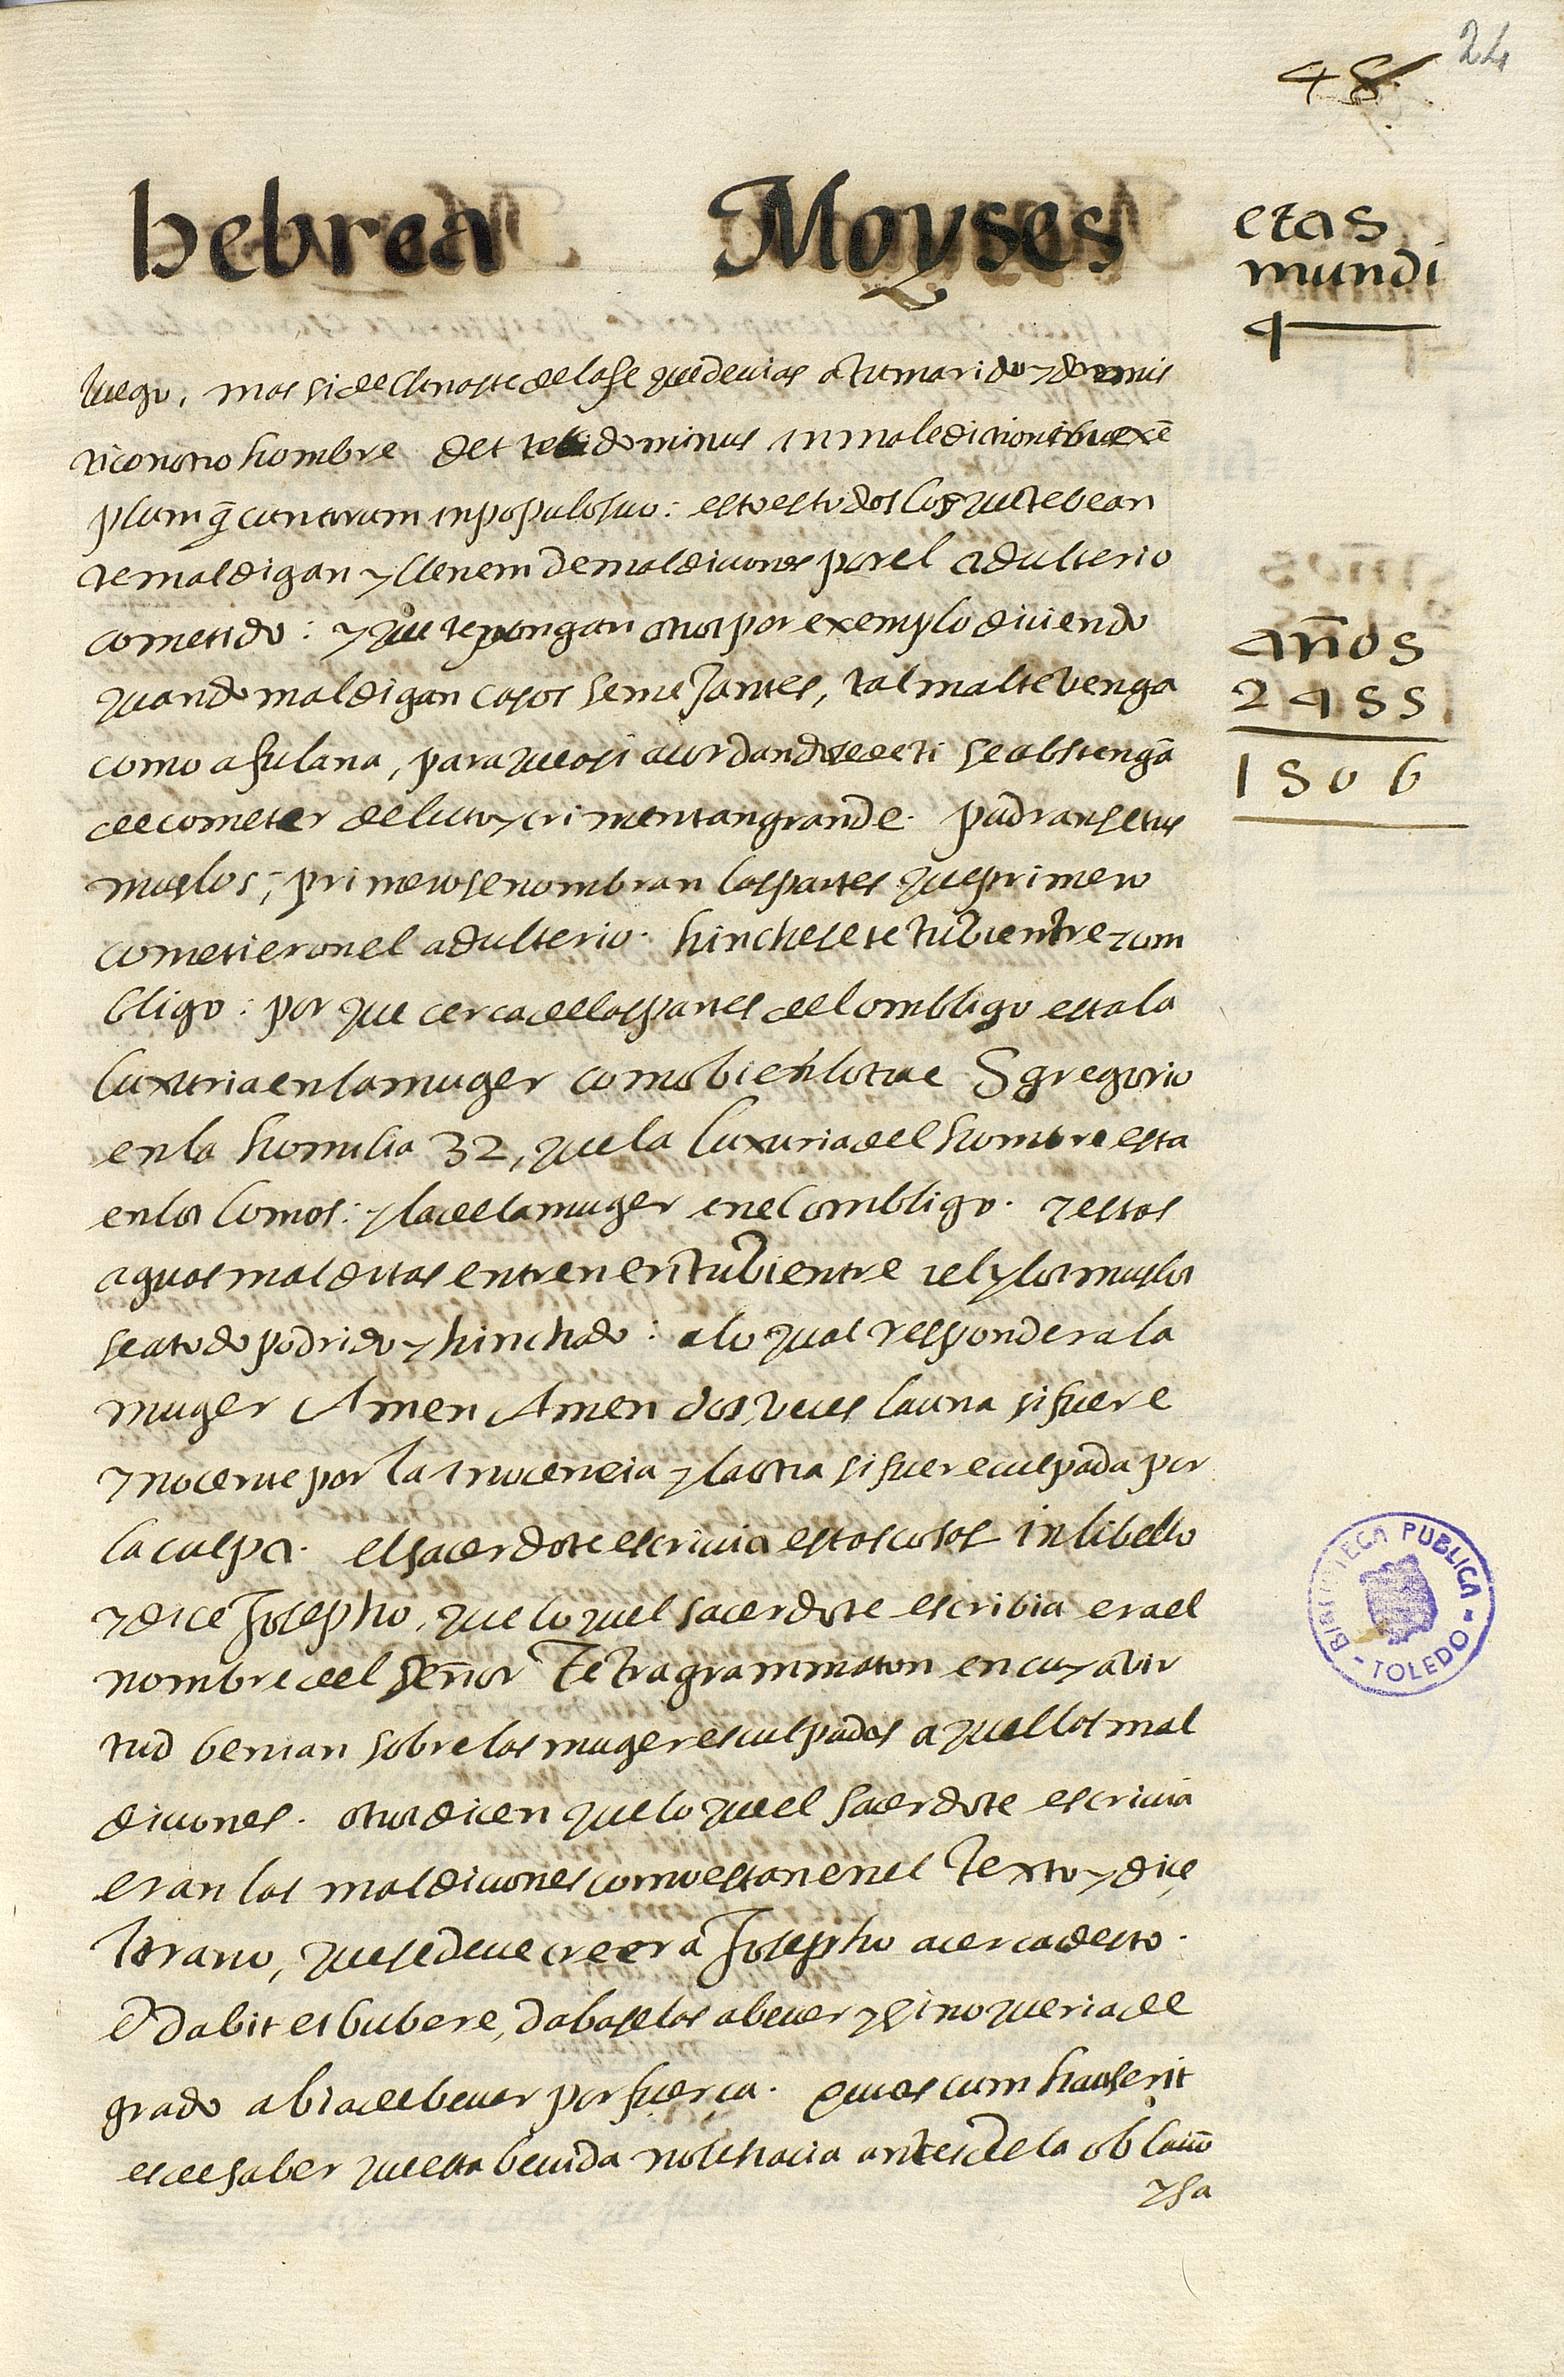 24
48
hebrea Moyses
etas
mundi
4
luego, mas si declinaste de la fe que devias a tu marido y dormis
ti con otro hombre det te dominus in maledictionem exē
plum q̃ cunctorum in populo suo: esto es todos los que te vean
te maldigan y llenem de maldiciones por el adulterio
cometido: y que te pongan otros por exemplo diciendo
quando maldigan casos semejantes, tal mal te venga
como a fulana, para que asi acordandose de ti se abstengã
de cometer delicto y crimen tan grande. pudranse tus
muslos; primero se nombran las partes que primero
cometieron el adulterio. hinchesete tu vientre y om
bligo: por que cerca de las partes del ombligo esta la
luxuria en la muger como bien lo trae S gregorio
en la homilia 32, que la luxuria del hombre esta
en los lomos: y la de la muger en el ombligo. y estas
aguas malditas entren en tu vientre y el y los muslos
sea todo podrido y hinchado: a lo qual respondera la
muger Amen Amen dos veces la una si fuere
ynocente por la inocencia y la otra si fuere culpada por
la culpa. el sacerdote escrivia estas cosas in libello
y dice Josepho, que lo quel sacerdote escribia era el
nombre del señor Tetragrammaton en cuya vir
tud venian sobre las mugeres culpadas aquellos mal
diciones. otros dicen que lo que el sacerdote escrivia
eran las maldiciones como estan en el Texto y diçe
lirano, que se deve creer a Josepho acerca desto.
& dabit ei bubere, dabaselas a bever y si no queria de
grado abia de bever por fuerça. quas cum hauserit
es de saber que esta bevida no se hacia antes de la oblaciõ
y sa
años
2455
1506
BIBLIOTECA PUBLICA
- TOLEDO -